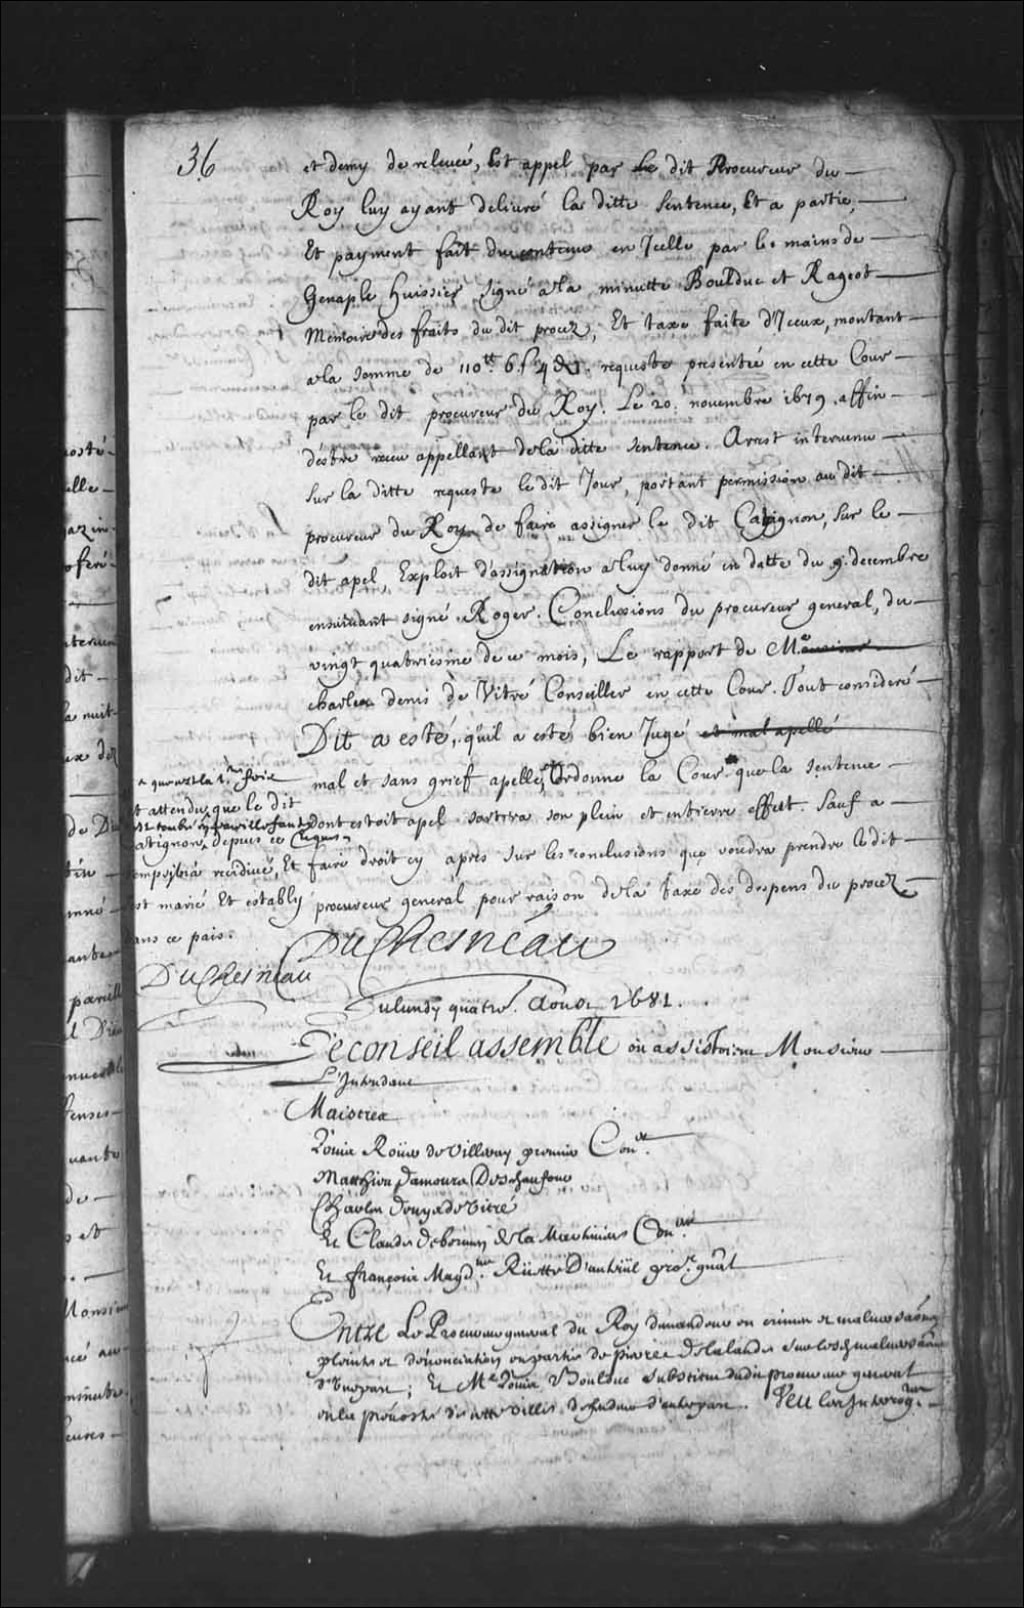 36
et demy de relevée, Est appel par Le dit Procureur du
Roy luy ayant delivré la ditte sentence, Et a partie,
Et payment fait du contenu en Icelle par les mains de
Genaple huissier signé a la minutte Boulduc et Rageot
Memoire des fraits du dit procez, Et taxe faite d'Iceux, montant
a la somme de 110tt 6s 4d. requeste presentée en cette Cour
par le dit procureur du Roy. Le 20. novembre 1679. affin
d'estre receu appellant de la ditte sentence. Arest intervenu
sur la ditte requeste le dit Jour, portant permission au dit
procureur du Roy de faire assigner le dit Catignon, sur le
dit apel, Exploit d'assignation a luy donné en datte du 9. decembre
ensuivant signé Roger. Conclusions du procureur general, du
vingt quatriesme de ce mois, Le rapport de Me
charles denis de Vitré Conseiller en cette Cour. Tout consideré
Dit a esté, qu'il a esté bien Jugé et mal apellé
mal et sans grief apellé, Ordonne la Cour que la sentence
dont estoit apel sortira son plein et entierre effect. Sauf a
faire droit cy apres sur les conclusions que voudra prendre le dit
procureur general pour raison de la taxe des despens du procez
DuChesneau
Et attendu que le dit
catignon depuis ce
temps n'a recidivé, Et
est marié Et estably
dans ce pais.
DuChesneau
Du lundy quatre. Aoust 1681.
Le conseil assemblé où assistoient Monsieur
L'Intendant
Maistres
Louis Roüer de Villeray premier Coner.
Matthieu Damours Deschaufour
Charles Denys de Vitré
Et Claude de bermen de la Martiniere Coners
Et françois Magdne Rüette D'auteüil pror. gnâl
Entre Le Procureur general du Roy demandeur en crimes et malversaôns
plainte et denonciation en partie de pierre delalande sur lesd malversaôns
d'une part; Et Me Louis Boulduc substitut dudit procureur general
en la prevosté de cette ville, deffendeur d'autre part. Veu les Interogres